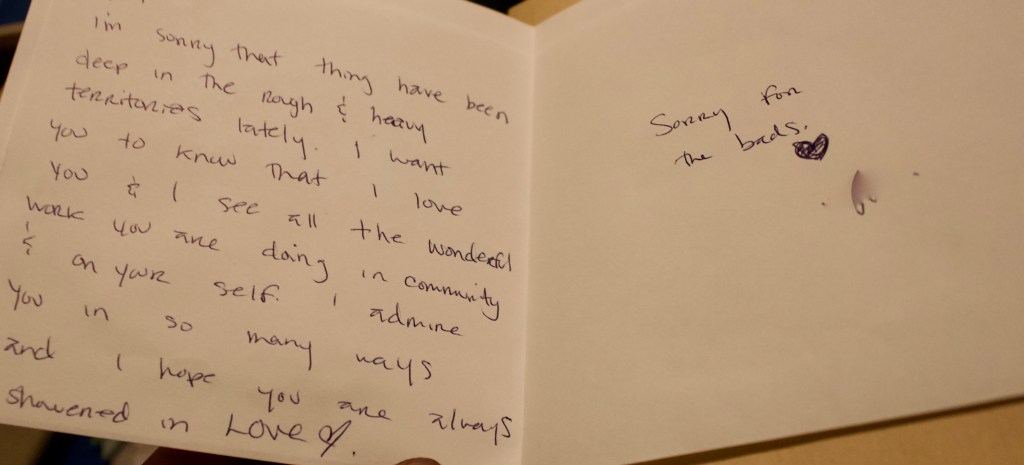 I'm sorry that thing have been
deep in the rough & heavy
territories lately. I want
you to know that I love
you & I see all the wonderful
work you are doing in community
& on your self. I admire
you in so many ways
and I hope you are always
showered in LOVE
Sorry for
the bads.